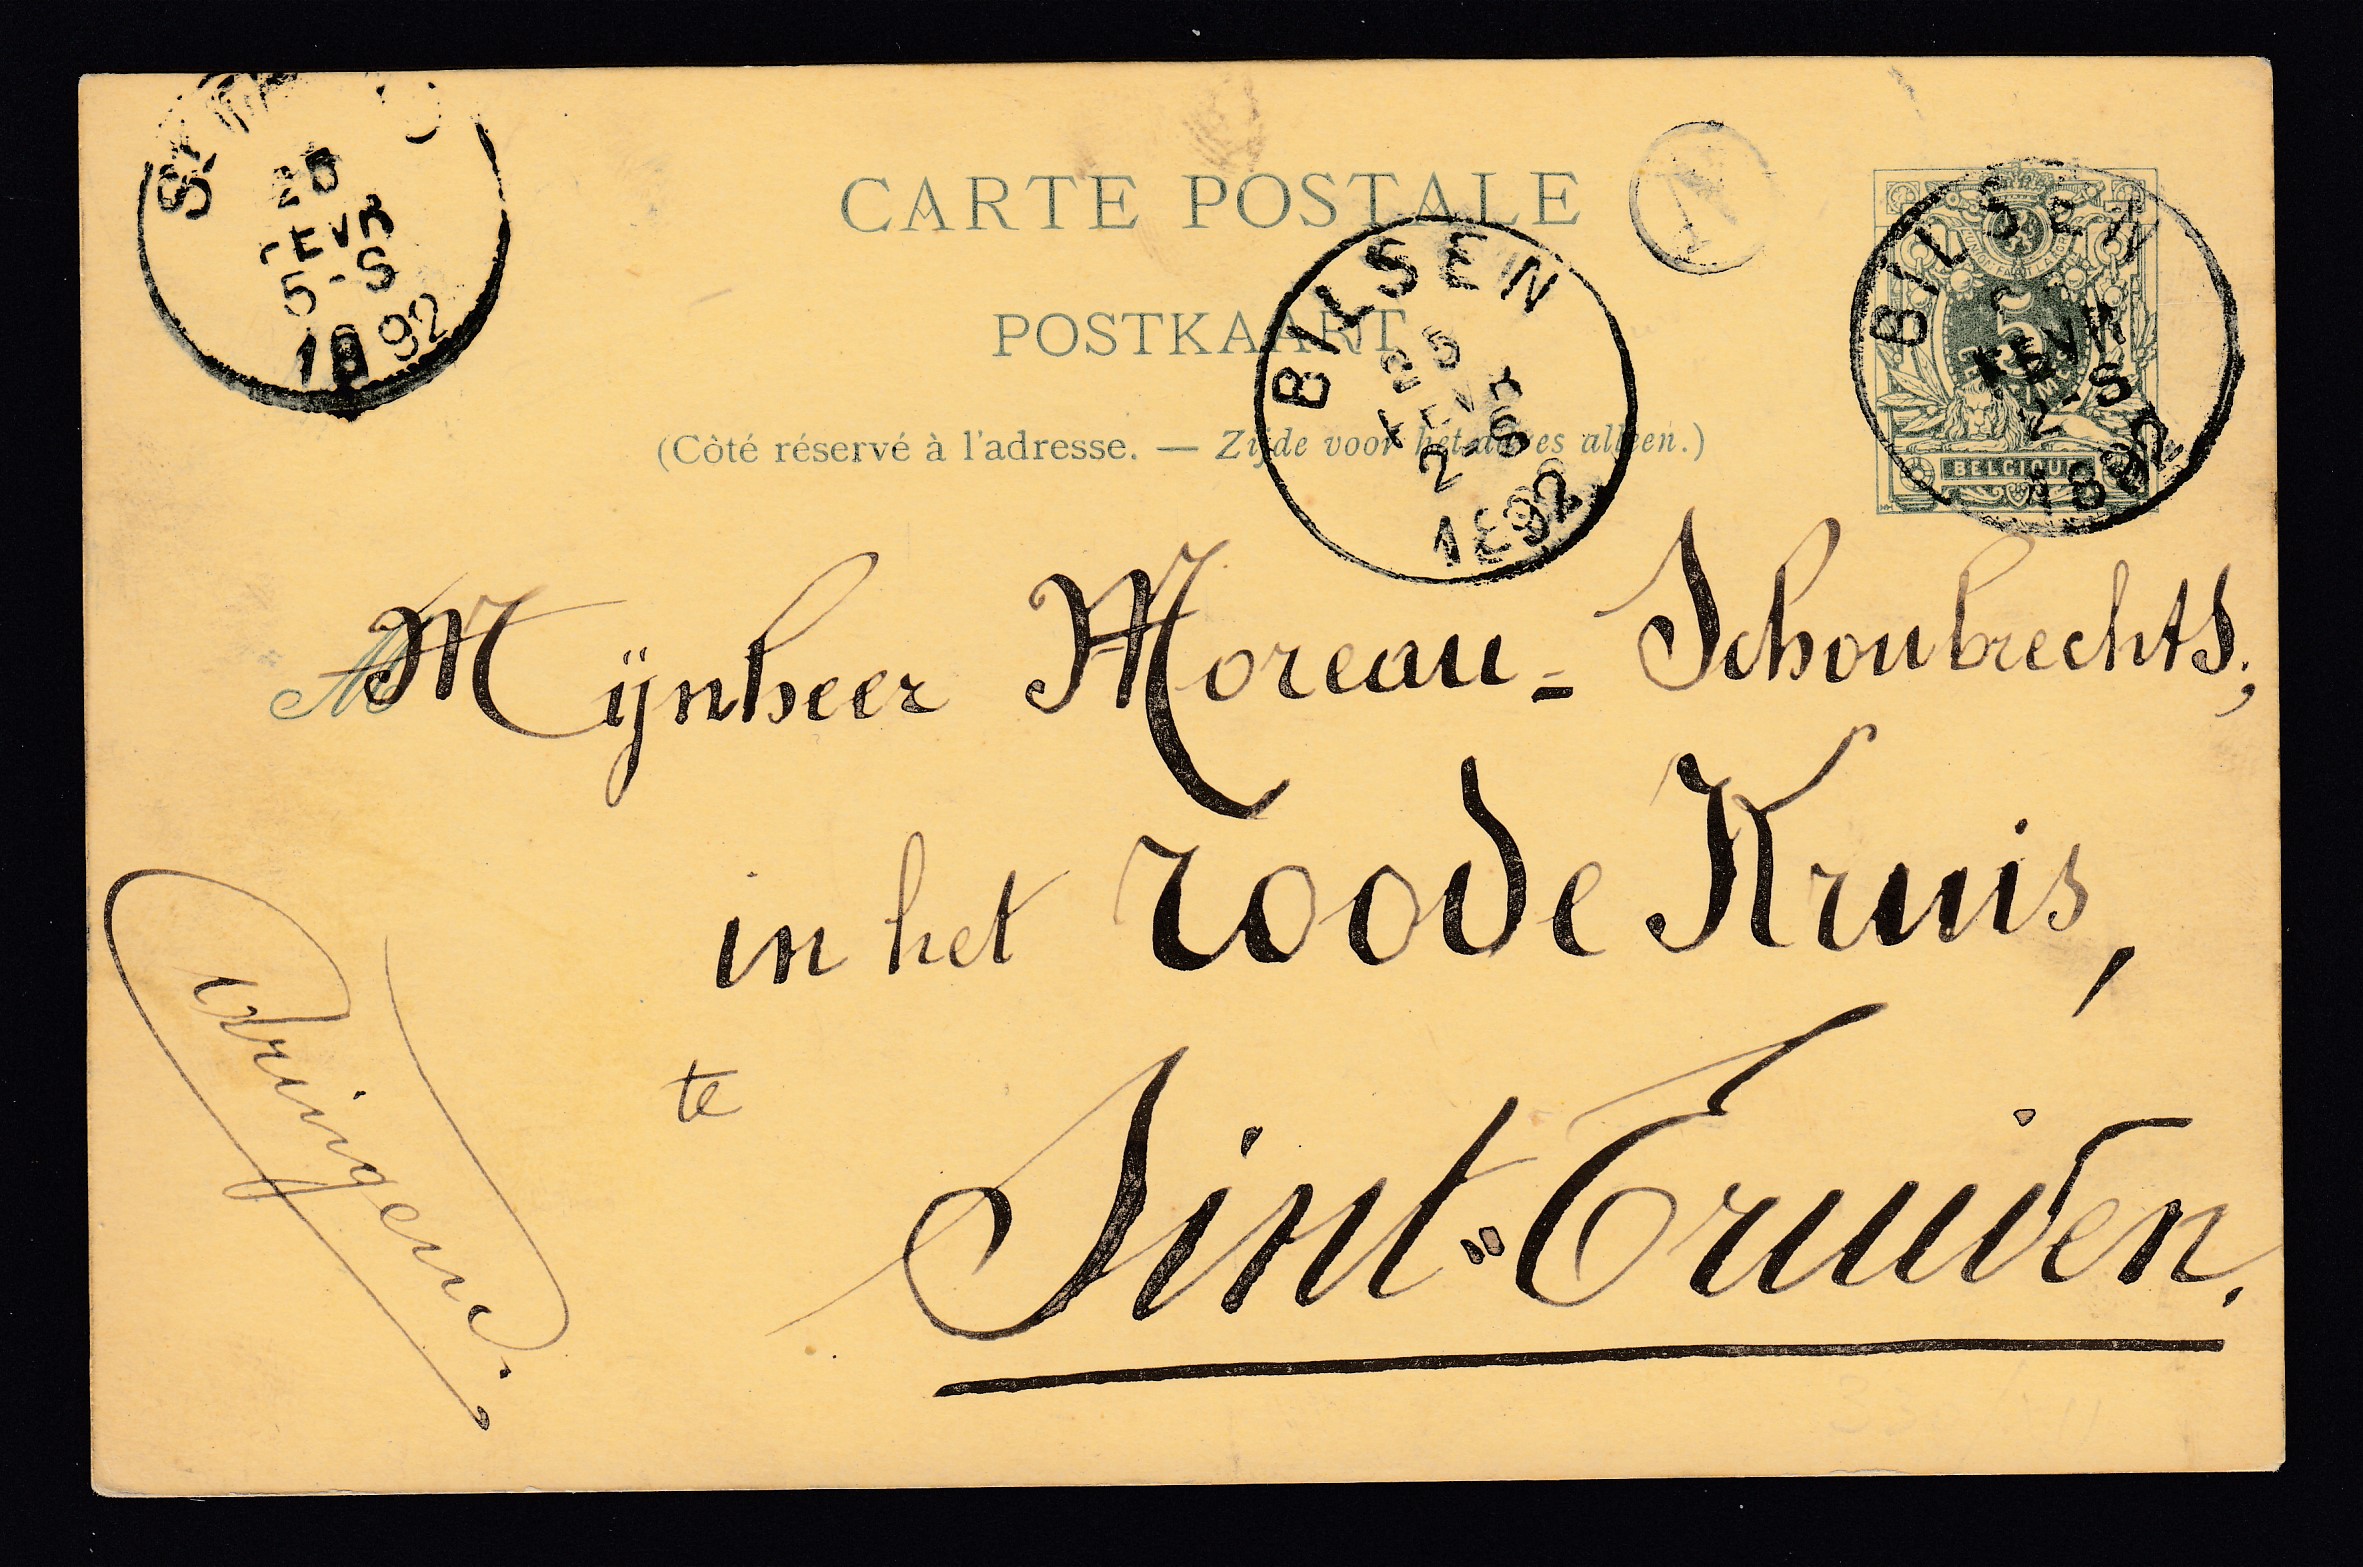 CARTE POSTALE
POSTKAART
(Côté réservé à l'adresse. — Zijde voor het adres alleen.)
BILSEN
25
FEVR
2-S
1892
BILSEN
FEVR
2-S
1892
5
BELGIQUE
25
FEVR
5-S
1892
M
Mijnheer Moreau-Schoubrechts,
in het roode Kruis,
te
Sint-Truiden.
dringend.